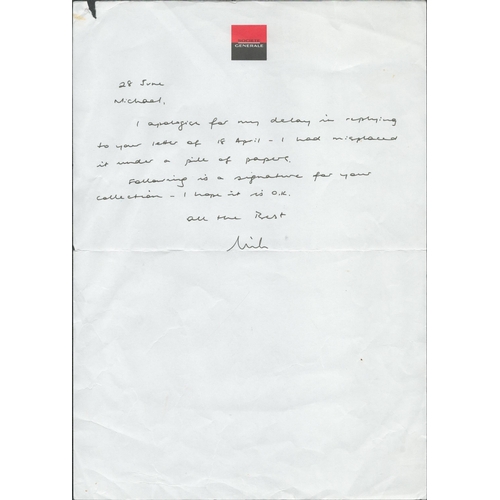 SOCIETE
GENERALE
28 June
Michael,
I apologise for my delay in replying
to your letter of 18 April - I had misplaced
it under a pile of papers.
Following is a signature for your
collection - I hope it is O.K.
All the Best